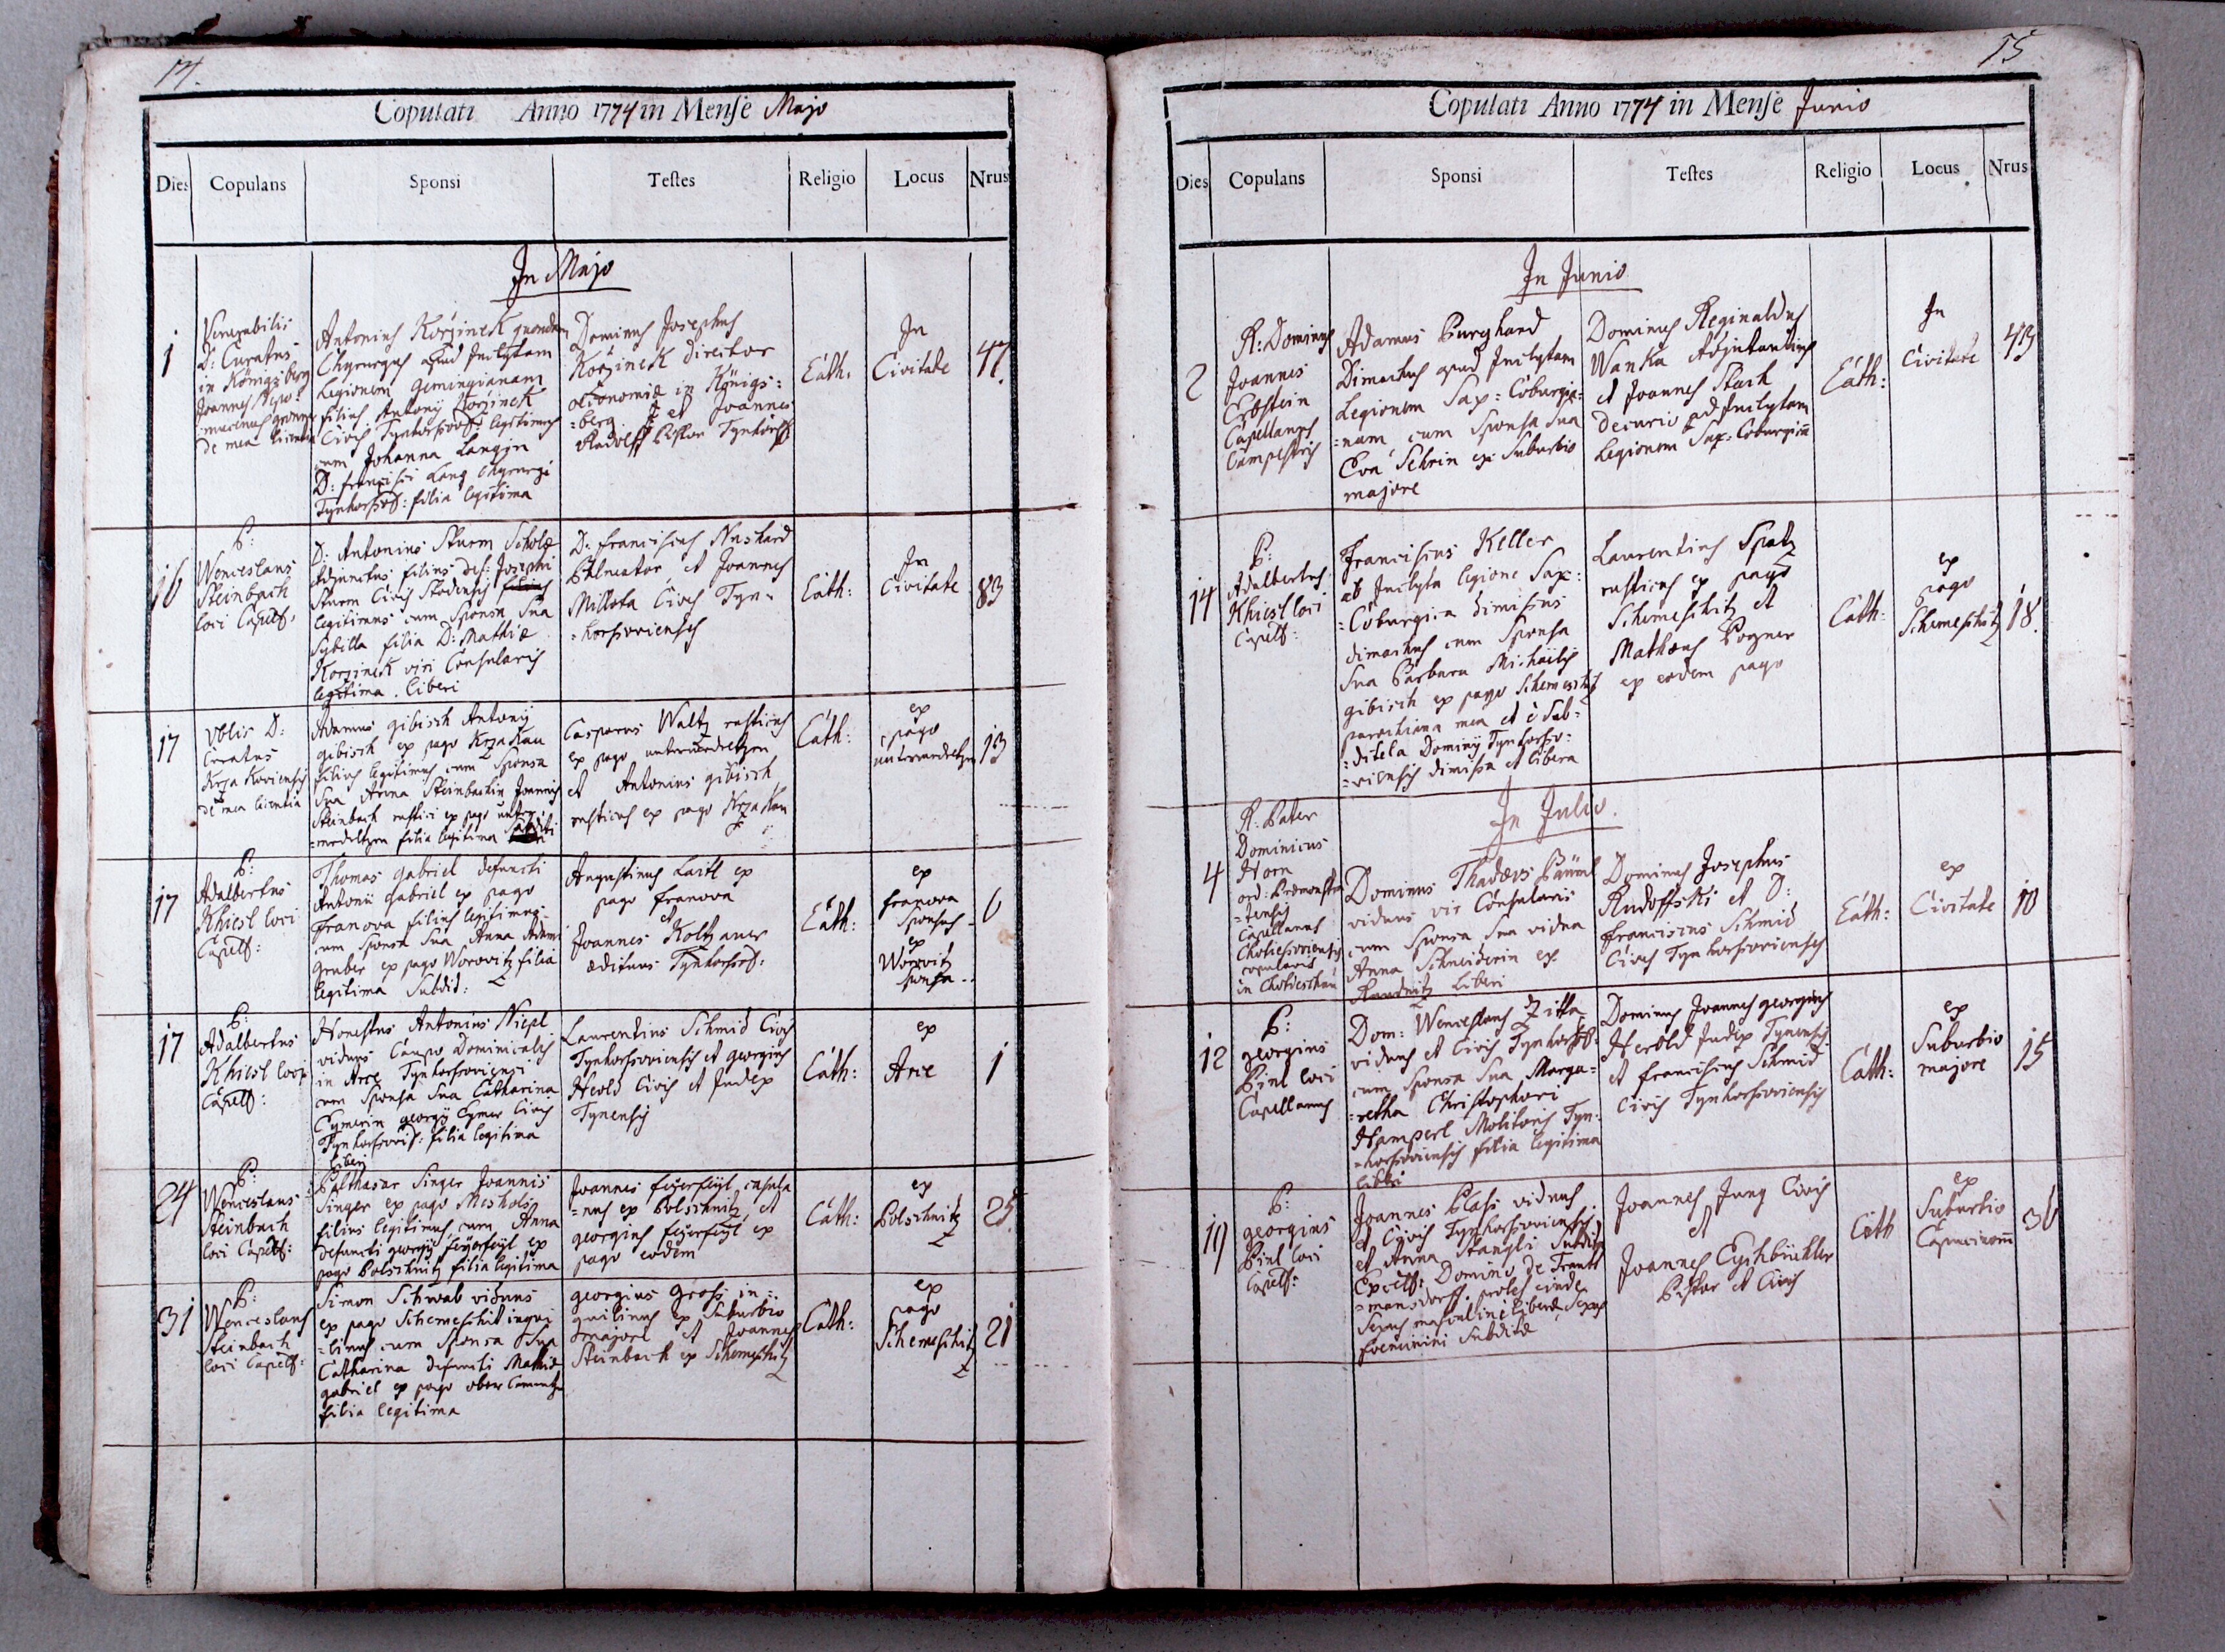 14.
Copulati Anno 1774 in Mense Majo
Dies Copulans Sponsi Testes Religio Locus Nrus
In Majo
1
Venerabilis
D: Curatus
in Königsberg
Joannes
de mea licentia
Antonius Kořzinek quondam
Chyrurgus apud Inclytam
Legionem Gemingianam
filius Antonij Kořzinek
Civis legitimus
cum Johanna Langin
D: Francisci Lang Chyrurgi
Tynhorssov: filia legitima
Dominus Josephus
Kořzinek Director
oeconomiae in Königs=
=berg et Joannes
Rudolff Pistor Tynhorss:
Cath:
In
Civitate
47.
16
P:
Wenceslaus
Steinbach
loci Capell:
D: Antonius Sturm Scholae
Adjunctus filius def: Josephi
Sturm Civis Stodensis filius
legitimus cum Sponsa Sua
Sybilla filia D: Mathiae
Korzinek viri Consularis
legitima. liberi
D: Franciscus Nushard
Balneator, et Joannes
Millota Cives Tyn=
=horssovienses
Cath:
In
Civitate
83
17
Vblis D:
Curatus
Krzakoviensis
de mea licentia
Adamus gibisch Antonij
gibisch ex pago Krzakau
filius legitimus cum Sponsa
Sua Anna Steinbachin Joannis
Steinbach rustici ex pago unter=
=medeltzen filia legitima Subditi
Casparus Waltz rusticus
ex pago untermedeltzen
et Antonius gibisch
rusticus ex pago Krzakau
Cath:
ex
pago
untermedeltzen
13
17
P:
Adalbertus
Khiesl loci
Capell:
Thomas gabriel defuncti
Antonii gabriel ex pago
Franova filius legitimus
cum Sponsa Sua Anna Adami
Gruber ex pago Worovitz filia
legitima Subdit:
Augustinus Laitl ex
pago Franova
et
Joannes Koltzauer
aedituus Tynhorssov:
Cath:
ex
Franova
Sponsus
ex
Worovitz
Sponsa
6
17
P:
Adalbertus
Khiesl loci
Capell:
Honestus Antonius Niepl
viduus Caupo Dominicalis
in Arce Tynhorssoviensi
cum Sponsa Sua Catharina
Cymerin georgij Cymer Civis
Tynhorssovis: filia legitima
liberi
Laurentius Schmid Civis
Tynhorssoviensis et georgius
Herold Civis et Judex
Tynensis
Cath:
ex
Arce
1
24
P:
Wenceslaus
Steinbach
loci Capell:
Balthasar Singer Joannis
Singer ex pago Meshols
filius legitimus cum Anna
defuncti georgij feyerfeyl ex
pago Polschnitz filia legitima
Joannes feyerfeyl casula
=nus ex Polschnitz et
georgius feyerfeyl ex
pago eodem
Cath:
ex
Polschnitz
25
31
P:
Wenceslaus
Steinbach
loci Capell:
Simon Schwab viduus
ex pago Schemeschit inqui
=linus cum Sponsa Sua
Catharina defuncti Mathiae
gabriel ex pago ober
filia legitima
georgius Gross in=
quilinus ex Suburbio
majore et Joannes
Steinbach ex Schemeschitz
Cath:
ex
pago
Schemeschitz
21
15
Copulati Anno 1774 in Mense Junio
Dies Copulans Sponsi Testes Religio Locus Nrus
In Junio
2
R: Dominus
Joannes
Erbstein
Capellanus
Campestris
Adamus Purghard
Dimachus apud Inclytam
Legionem Sax: Coburgia=
=nam cum Sponsa Sua
Eva Schrin ex Suburbio
majore
Dominus Reginaldus
Wanka Adjutantius
et Joannes Stark
Decurio ad Inclytam
Legionem Sax: Coburgian
Cath:
In
Civitate
43
14
P:
Adalbertus
Khiesl loci
Capell:
Franciscus Keller
ab Inclyta legione Sax:
=Coburgica dimissus
dimachus cum Sponsa
Sua Barbara Michaëlis
gibisch ex pago Schemeschitz
parochiana mea et è Sub=
=ditela Dominij Tynhorsso=
=viensis dimissa et libera
Laurentius Spatz
rusticus ex pago
Schemeschitz et
Mathaeus Pozner
ex eodem pago
Cath:
ex
pago
Schemeschitz
18.
In Julio.
4
R: Pater
Dominicus
Horn
ord: Praemonstra
=tensis
Capellanus
Chotiessoviensis
in Chotieschau
Dominus Thadaeus Päuml
viduus vir Consularis
cum Sponsa Sua vidua
Anna Schneiderin ex
Raudnitz liberi
Dominus Josephus
Rudoffski et D:
Franciscus Schmid
Cives Tynhorssovienses
Cath:
ex
Civitate
10
12
P:
georgius
Pinl loci
Capellanus
Dom: Wenceslaus Zitta
viduus et Civis Tynhorssov:
cum Sponsa Sua Marga=
=retha Christophori
Hamperl Molitoris Tyn=
=horssoviensis filia legitima
liberi
Dominus Joannes georgius
Herold Judex Tynensis
et Franciscus Schmid
Civis Tynhorssoviensis
Cath:
ex
Suburbio
majore
15
19
P:
georgius
Pinl loci
Capell:
Joannes Plass viduus
et Civis Tynhorssoviensis
et Anna Stangli Subdita
Excell: Domino de Traut
=mansdorff. proles inde
Sexus masculini liberae, Sexus
foeminini Subditae
Joannes Jung Civis
et
Joannes Eyshbüchler
Pistor et Civis
Cath
ex
Suburbio
Capucinorum
36